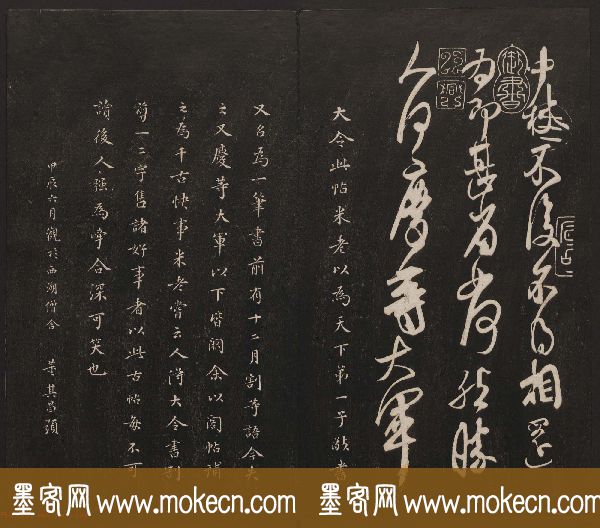 中秋不復不得相還
為即甚省如何然勝
人何慶等大軍
御書
大令此帖米老以為天下第一子敬書
又名為一筆書前有十二月割等語今失
之又慶等大軍以下皆闕余以閣帖補
之為千古快事米老嘗云人得大令書割
剪一二字售諸好事者以此古帖每不可
讀後人強為牽合深可笑也
甲辰六月觀於西湖僧舍 董其昌題
墨客网 www.mokecn.com 墨客网 www.mokecn.com